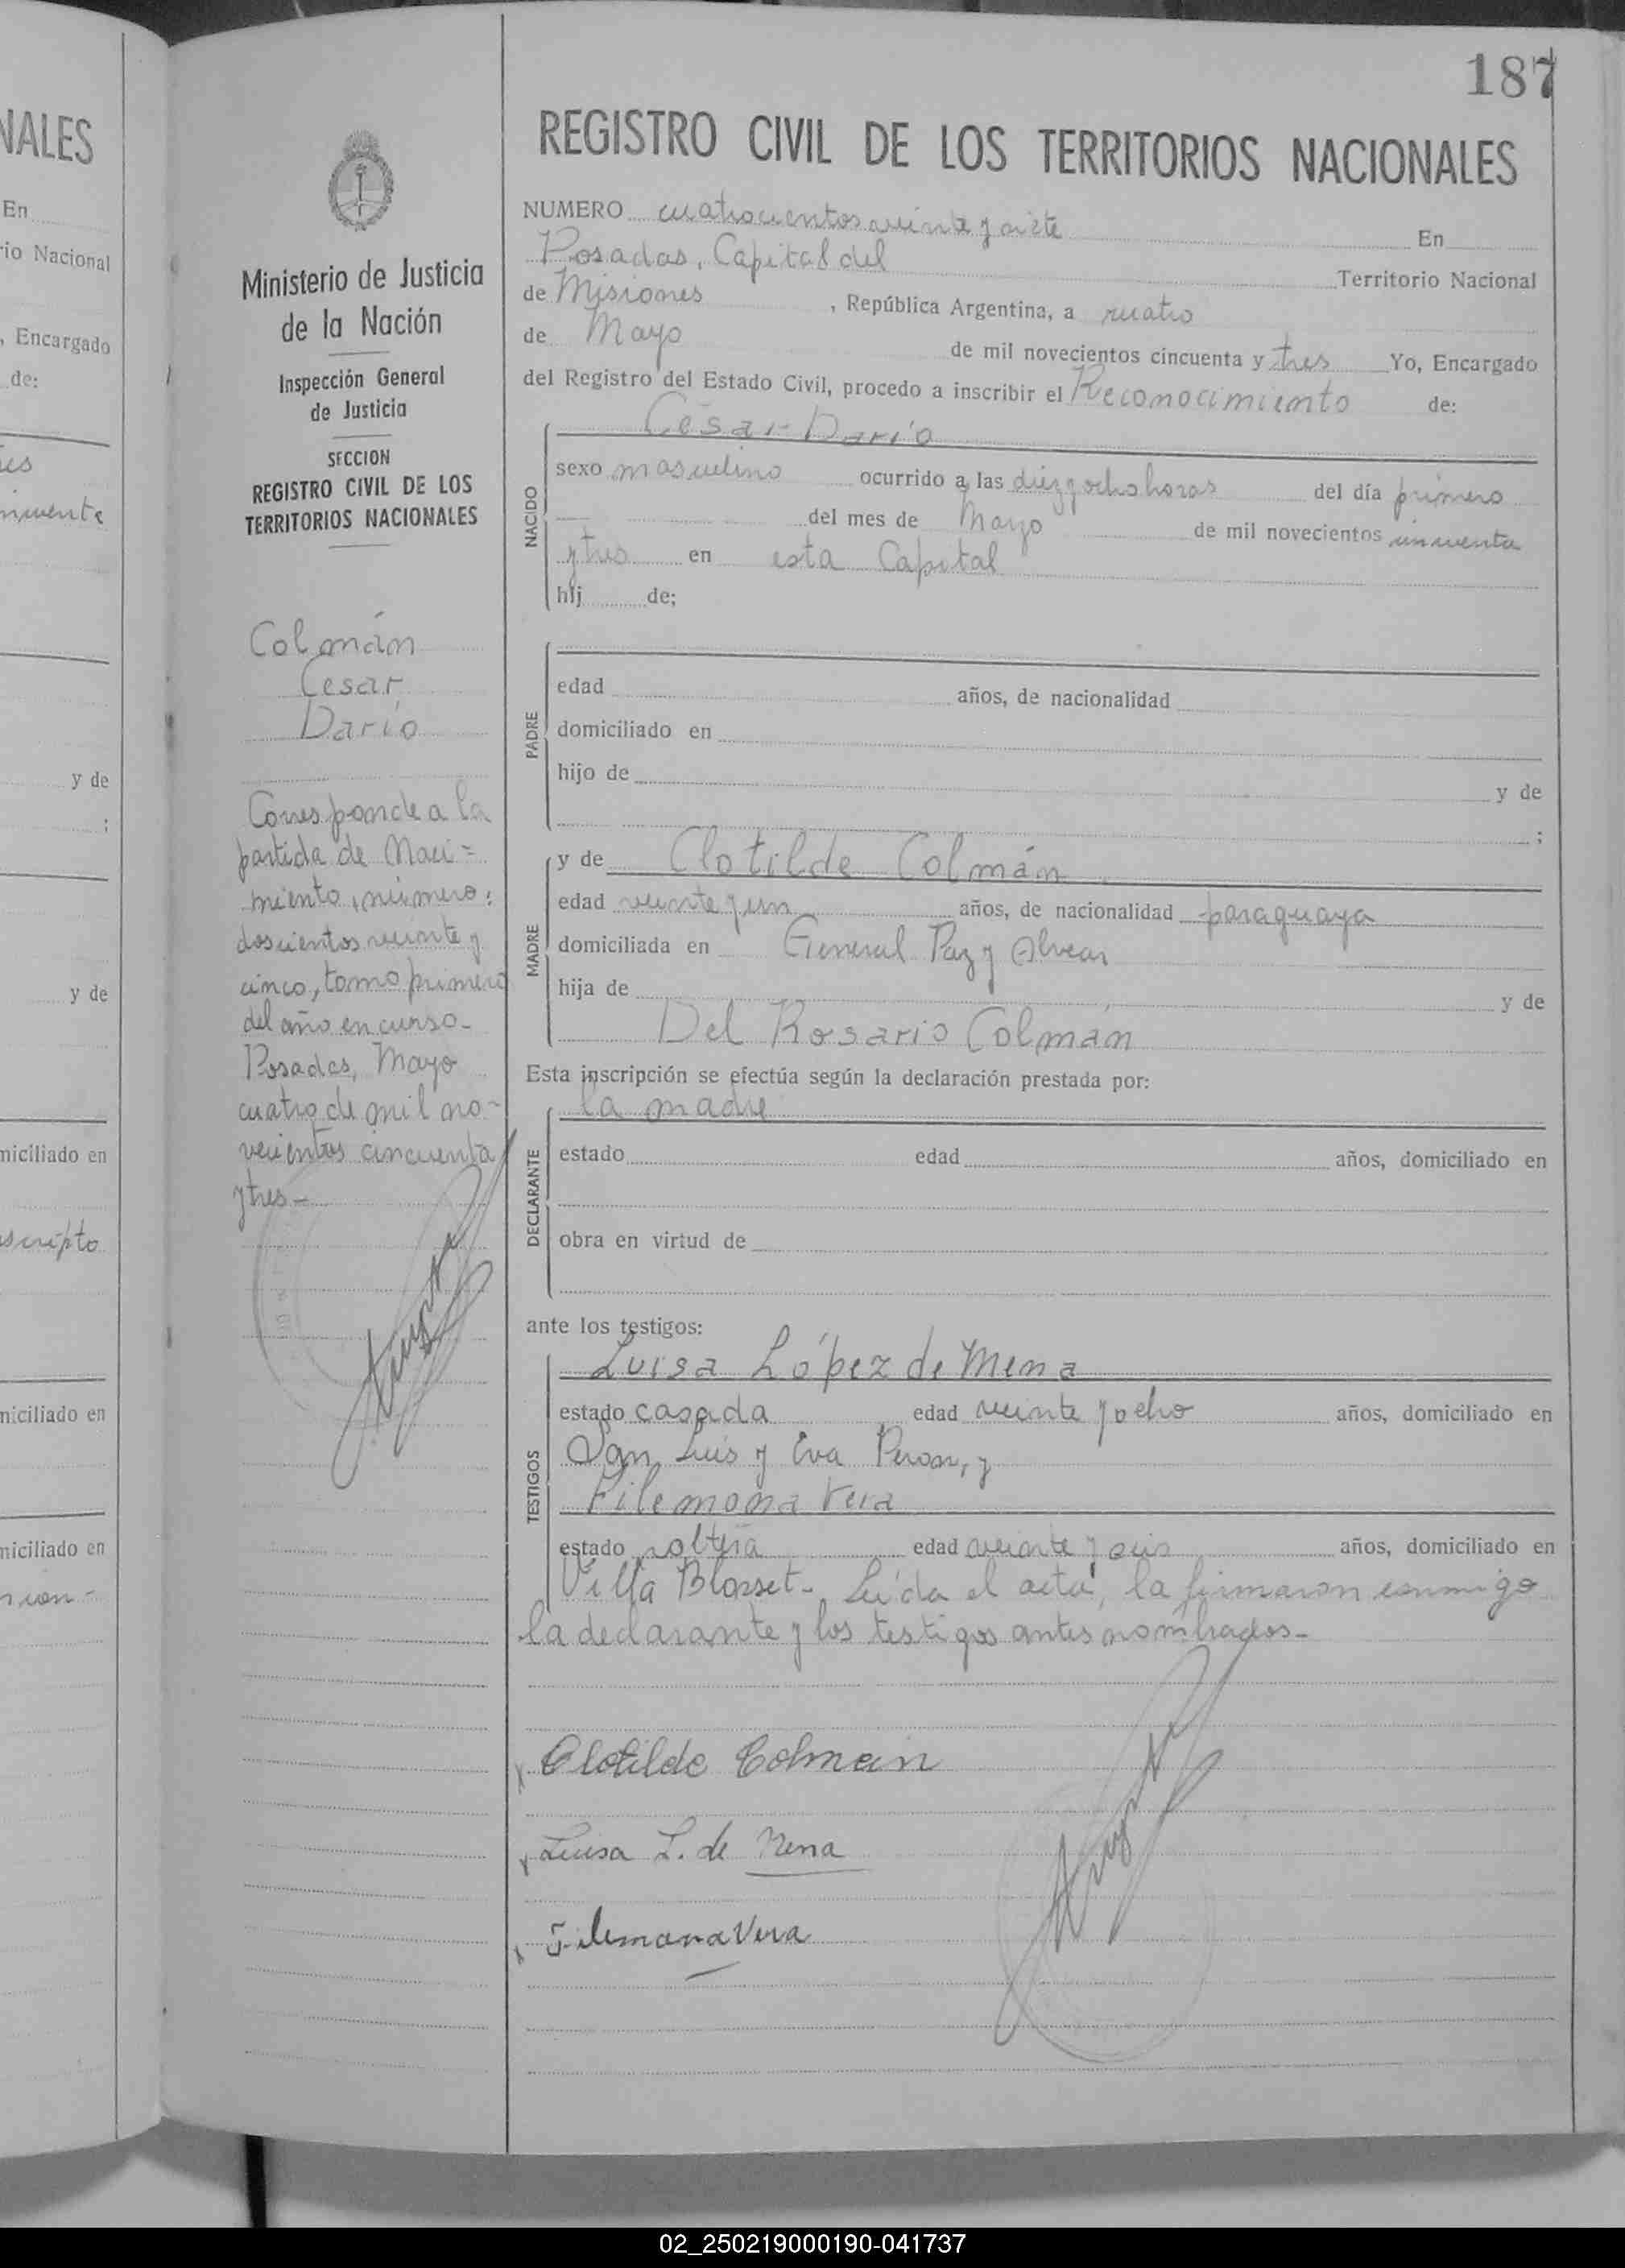 NALES
En
rio Nacional
, Encargado
de:
y de
;
y de
miciliado en
scripto
miciliado en
miciliado en
187
REGISTRO CIVIL DE LOS TERRITORIOS NACIONALES
Ministerio de Justicia
de la Nación
Inspección General
de Justicia
SECCION
REGISTRO CIVIL DE LOS
TERRITORIOS NACIONALES
Colmán
Cesar
Darío
Corresponde a la
partida de Naci=
miento, número:
doscientos veinte y
cinco, tomo primero
del año en curso-
Posadas, Mayo
cuatro de mil no-
vecientos cincuenta
y tres-
NUMERO cuatrocientos veinte y siete En
Posadas, Capital del Territorio Nacional
de Misiones , República Argentina, a cuatro
de Mayo de mil novecientos cincuenta y tres Yo, Encargado
del Registro del Estado Civil, procedo a inscribir el Reconocimiento de:
César Darío
NACIDO
sexo masculino ocurrido a las diez y ocho horas del día primero
del mes de Mayo de mil novecientos cincuenta
y tres en esta Capital
hij de;
PADRE
edad años, de nacionalidad
domiciliado en
hijo de y de
;
MADRE
y de Clotilde Colmán
edad veinte y un años, de nacionalidad paraguaya
domiciliada en General Paz y Alvear
hija de y de
Del Rosario Colmán
Esta inscripción se efectúa según la declaración prestada por:
la madre
DECLARANTE
estado edad años, domiciliado en
obra en virtud de
ante los testigos:
TESTIGOS
Luisa López de Mena
estado casada edad veinte y ocho años, domiciliado en
San Luis y Eva Peron, y
Filemona Vera
estado soltera edad veinte y seis años, domiciliado en
Villa Blosset- Leída el acta, la firmaron conmigo
la declarante y los testigos antes nombrados-
Clotilde Colman
Luisa L. de Mena
Filemona Vera
02_250219000190-041737